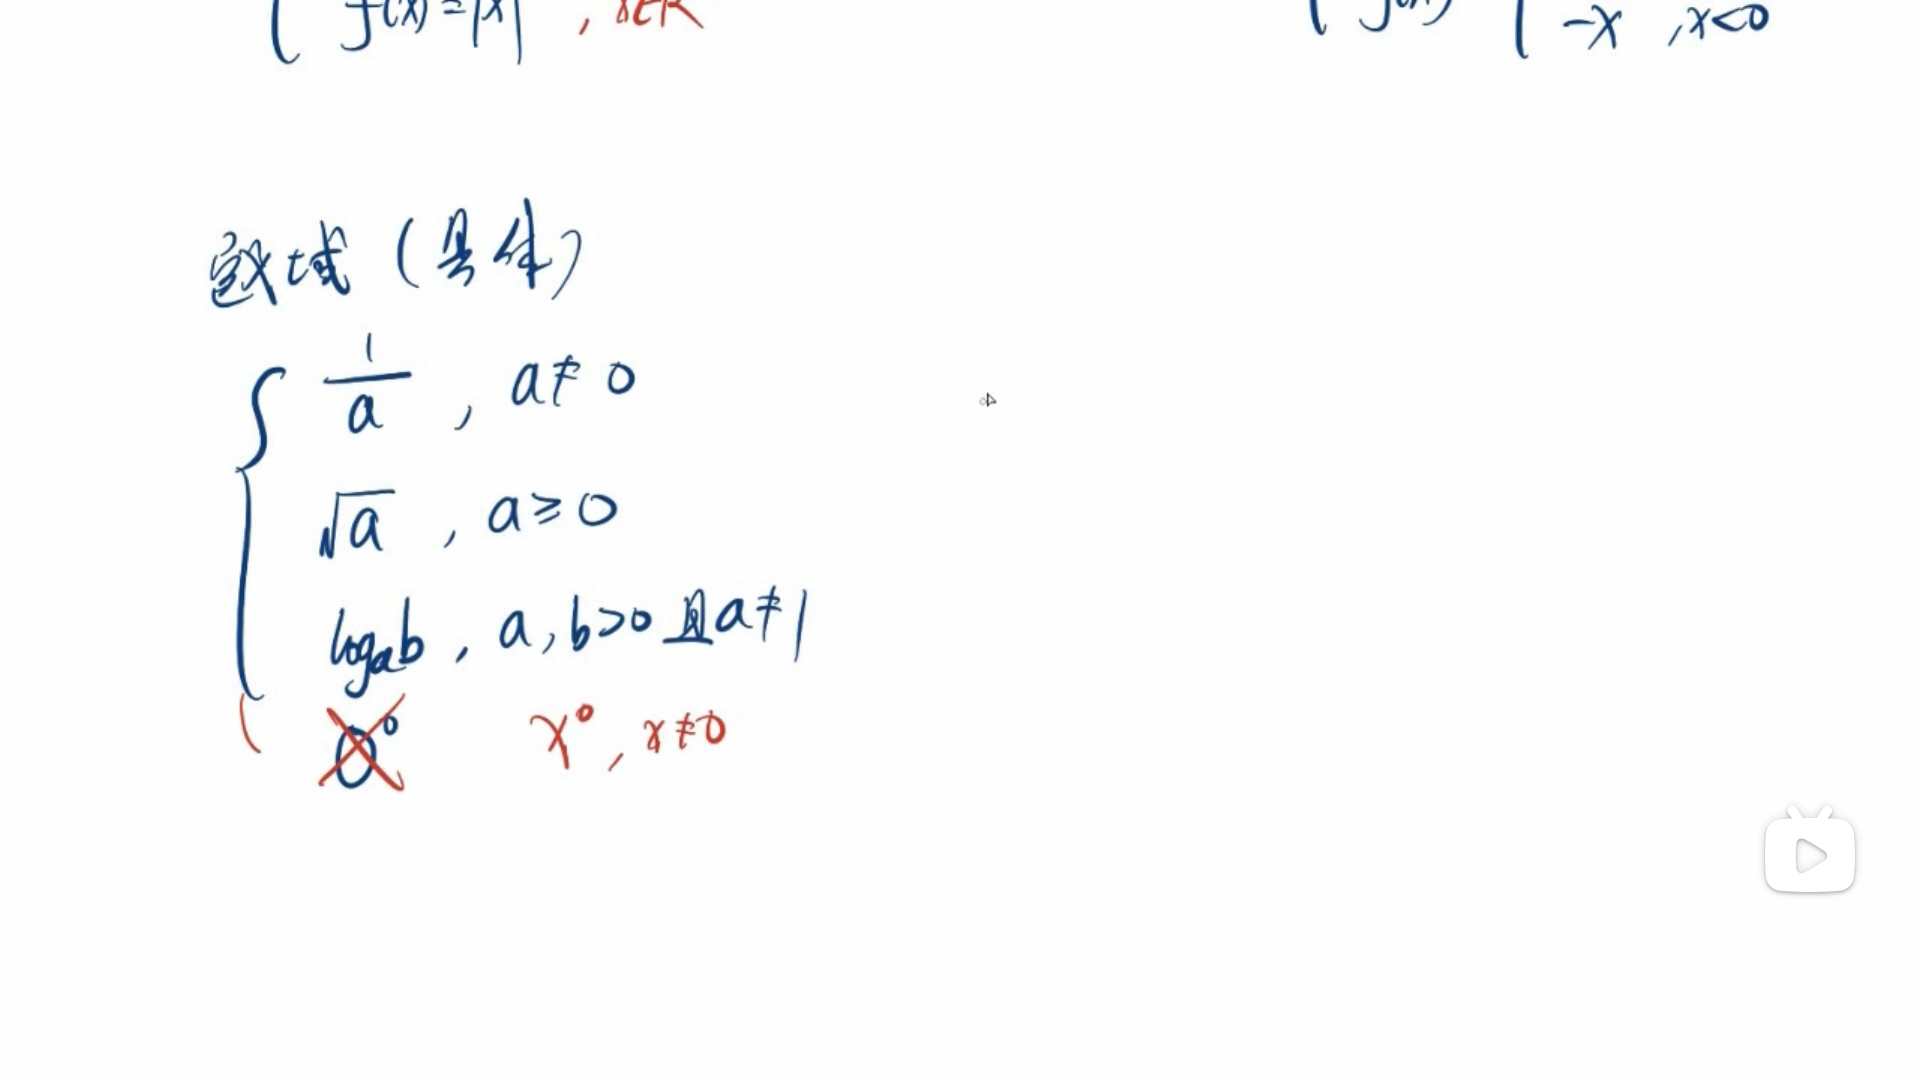 f(x)=|x| , x∈R
-x , x<0
定义域（具体）
1/a , a≠0
√a , a≥0
logₐb , a,b>0且a≠1
0⁰ x⁰ , x≠0